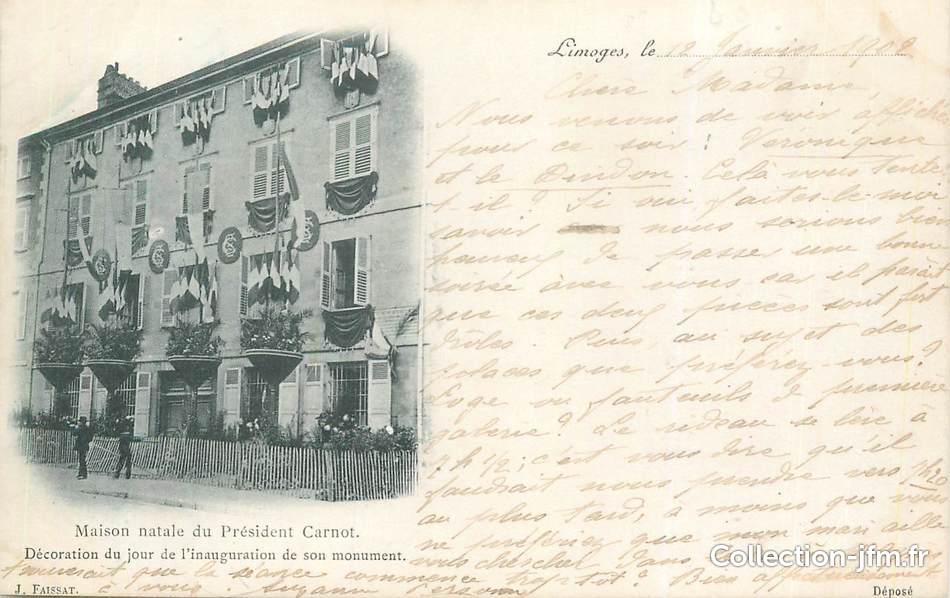 Limoges, le 12 Janvier 1902
Chère Madame,
Nous venons de voir affiché
pour ce soir : Véronique
et le Dindon. Celà vous tente
t-il ? Si oui faites-le moi
savoir nous serions bien
heureux de passer une bonne
soirée avec vous car il paraît
que ces deux pièces sont fort
drôles. Puis, au sujet des
places que préférez-vous ?
Loge ou fauteuils de première
galerie ? Le rideau se lève à
7h 1/2 ; c'est vous dire qu'il
faudrait nous prendre vers 7h20
au plus tard, à moins que vous
ne préfériez que mon mari aille
vous chercher dans
trouverait que la séance commence trop tôt ? Bien affectueusement
à vous. Suzanne
Maison natale du Président Carnot.
Décoration du jour de l'inauguration de son monument.
J. FAISSAT.
Déposé
Collection-jfm.fr